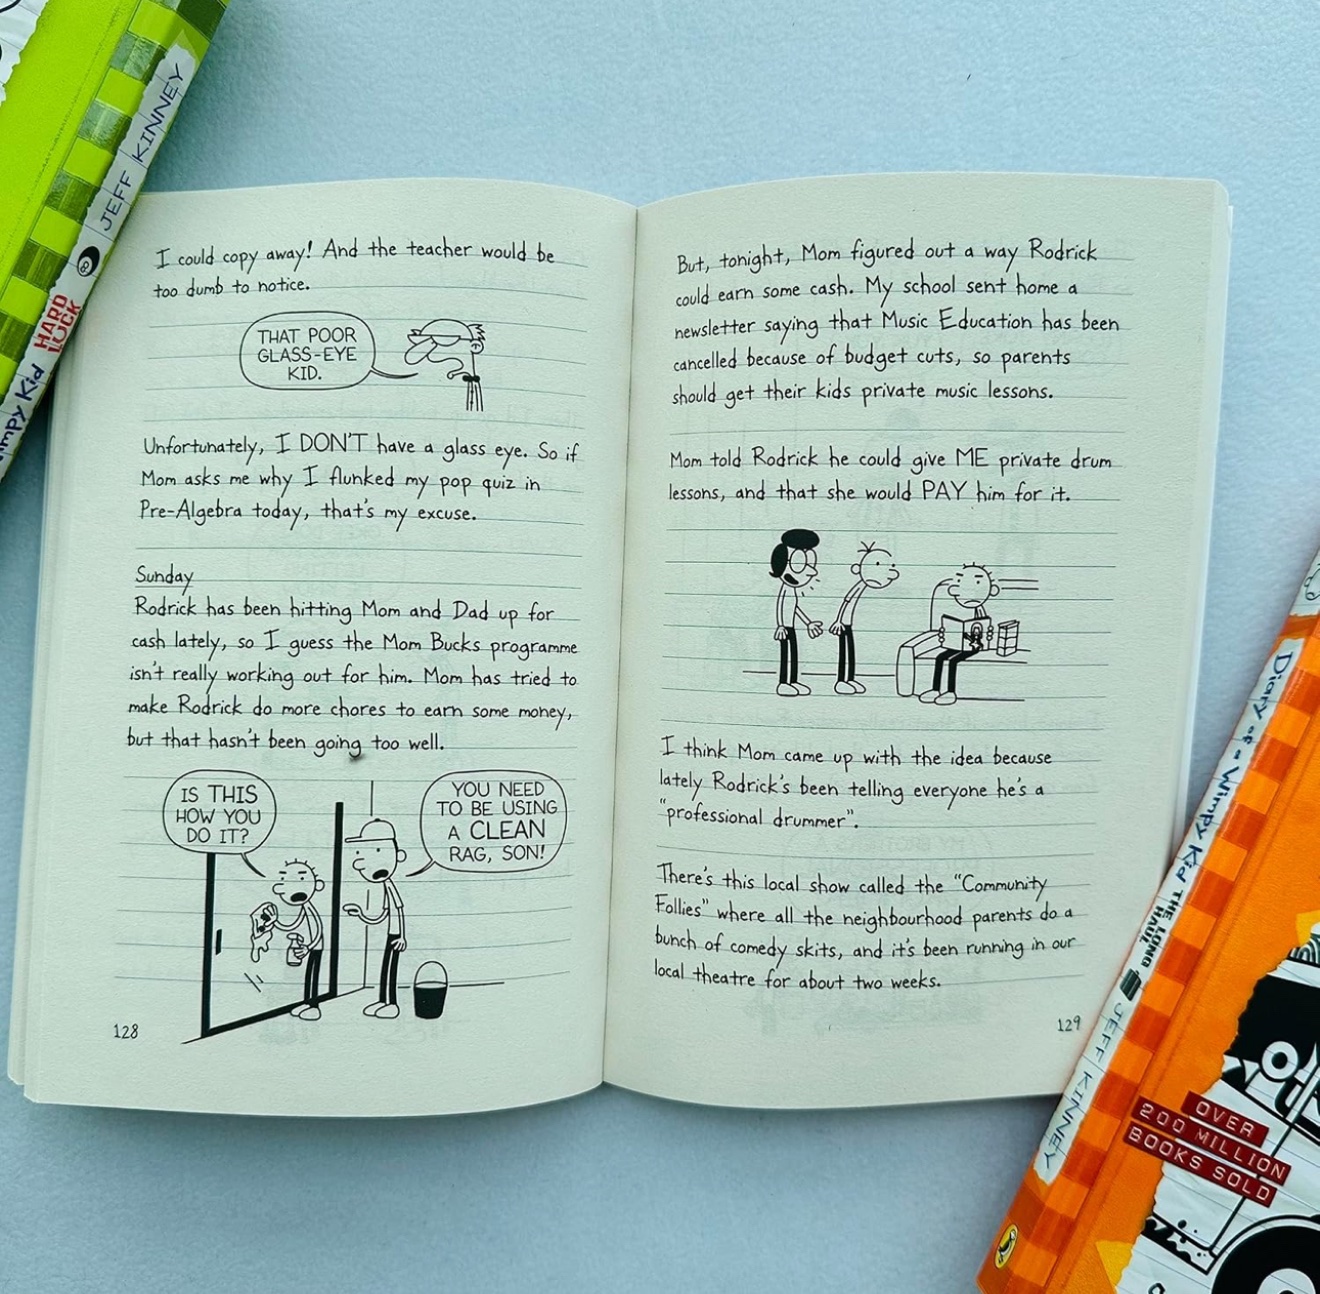 JEFF KINNEY
HARD
LUCK
Kid
I could copy away! And the teacher would be
too dumb to notice.
THAT POOR
GLASS-EYE
KID.
Unfortunately, I DON'T have a glass eye. So if
Mom asks me why I flunked my pop quiz in
Pre-Algebra today, that's my excuse.
Sunday
Rodrick has been hitting Mom and Dad up for
cash lately, so I guess the Mom Bucks programme
isn't really working out for him. Mom has tried to
make Rodrick do more chores to earn some money,
but that hasn't been going too well.
IS THIS
HOW YOU
DO IT?
YOU NEED
TO BE USING
A CLEAN
RAG, SON!
128
But, tonight, Mom figured out a way Rodrick
could earn some cash. My school sent home a
newsletter saying that Music Education has been
cancelled because of budget cuts, so parents
should get their kids private music lessons.
Mom told Rodrick he could give ME private drum
lessons, and that she would PAY him for it.
I think Mom came up with the idea because
lately Rodrick's been telling everyone he's a
"professional drummer".
There's this local show called the "Community
Follies" where all the neighbourhood parents do a
bunch of comedy skits, and it's been running in our
local theatre for about two weeks.
129
Diary of a Wimpy Kid THE LONG
HAUL
JEFF KINNEY
OVER
200 MILLION
BOOKS SOLD